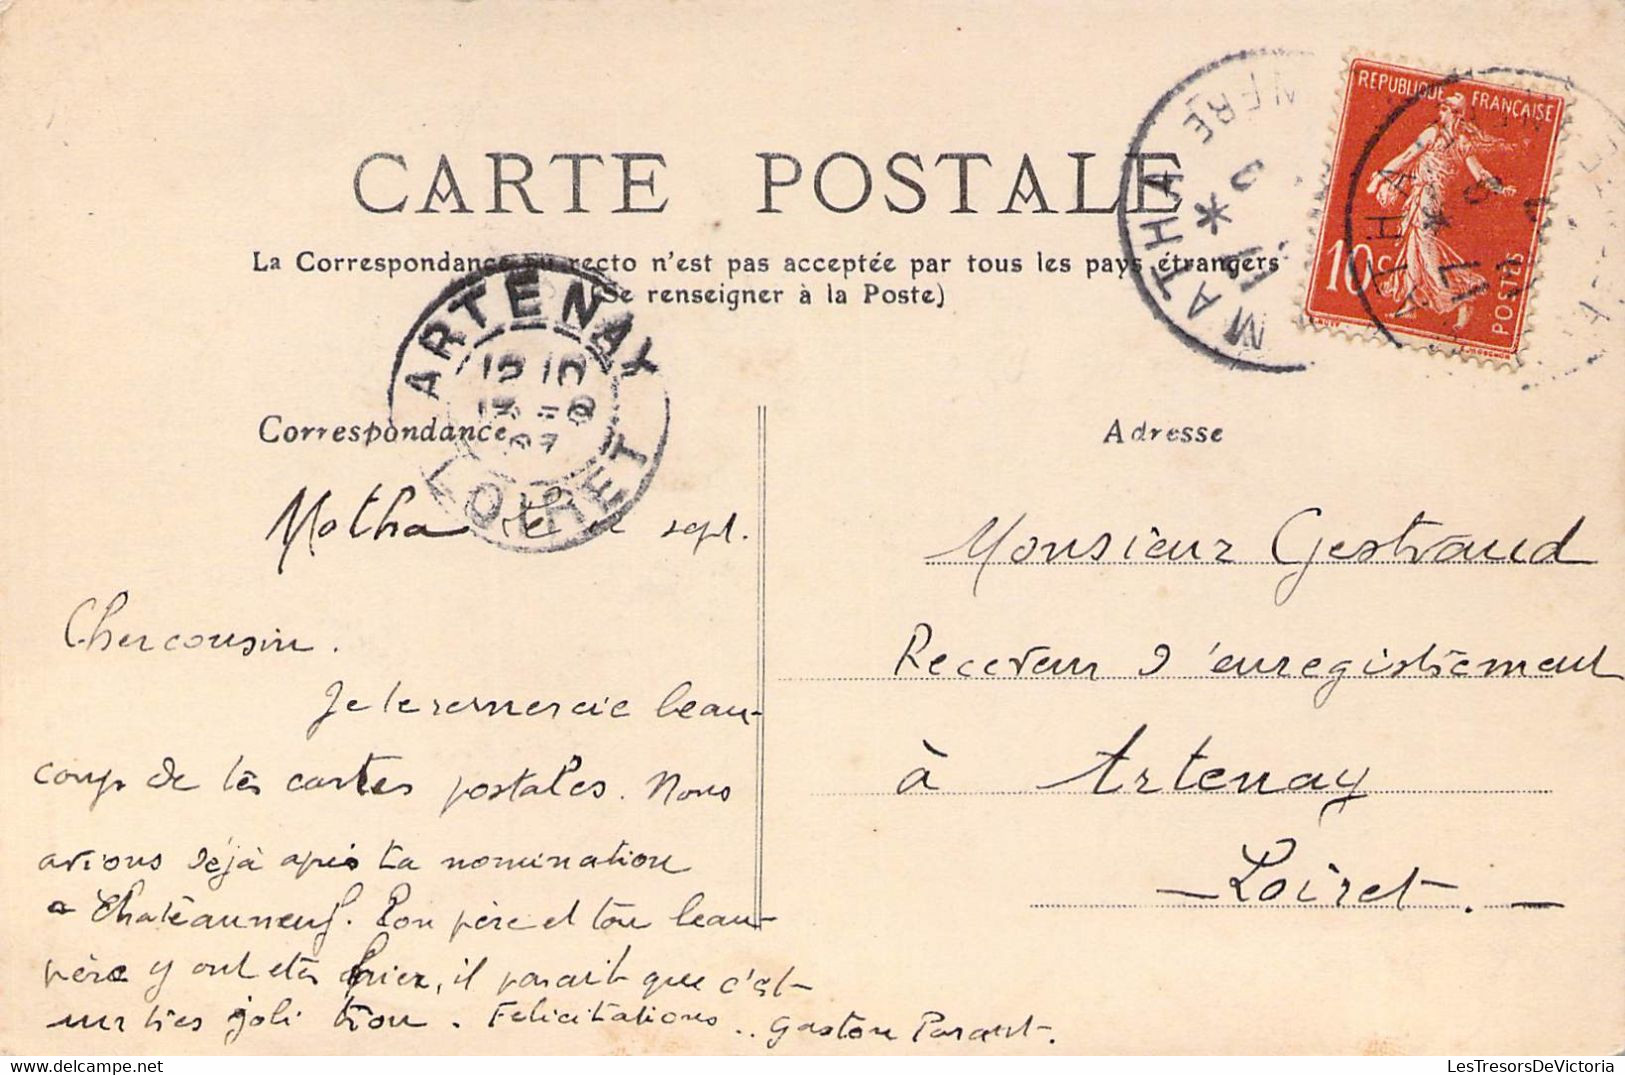 CARTE POSTALE
La Correspondance au recto n'est pas acceptée par tous les pays étrangers
(Se renseigner à la Poste)
MATHA
REPUBLIQUE FRANÇAISE
10 c
POSTES
ARTENAY
LOIRET
Correspondance
Adresse
Matha le sept.
Cher cousin.
Je te remercie beau-
coup de tes cartes postales. Nous
avions déjà appris ta nomination
a Chateauneuf. Ton père et ton beau-
père y ont étés hier, il parait que c'est
un très joli trou. Felicitations.. Gaston Parant.
Monsieur Gestraud
Receveur d'enregistrement
à Artenay
- Loiret. -
LesTresorsDeVictoria